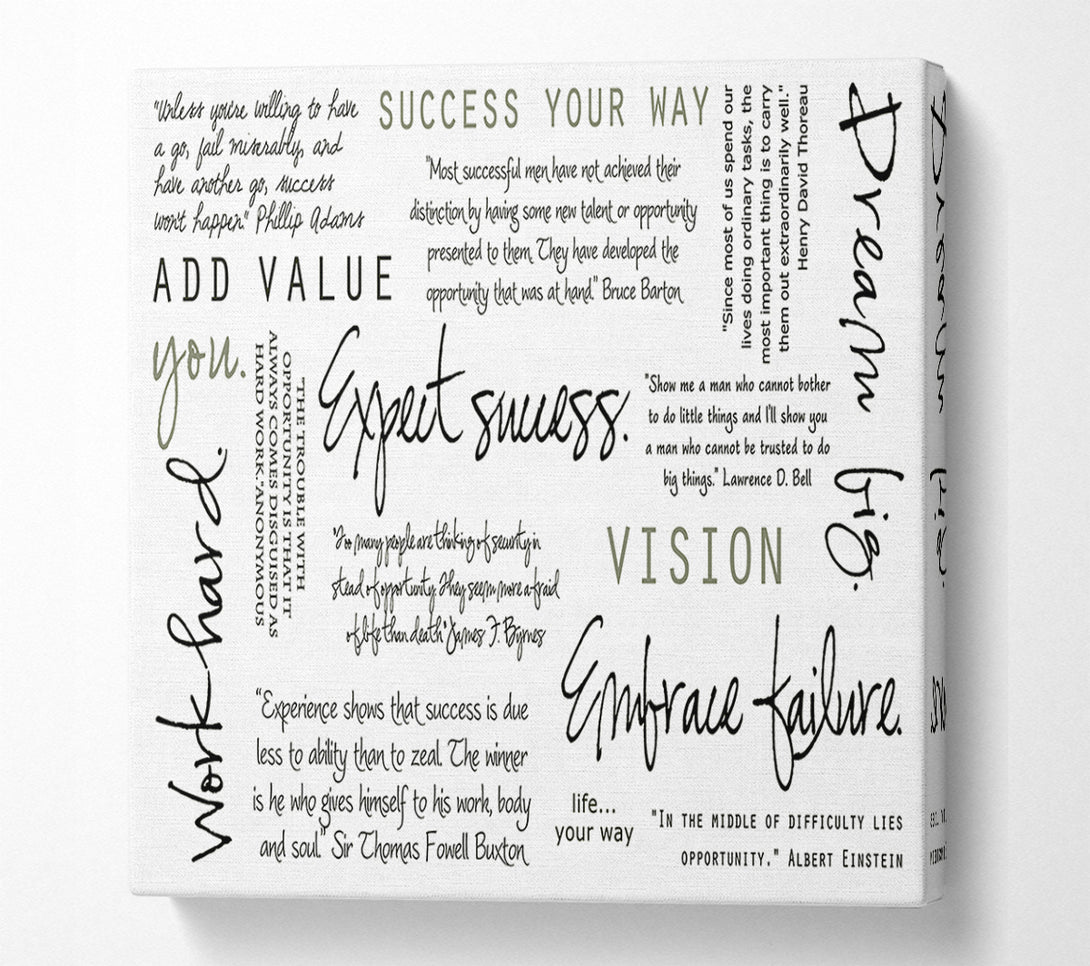 "Unless you're willing to have
a go, fail miserably, and
have another go, success
won't happen." Phillip Adams
SUCCESS YOUR WAY
"Most successful men have not achieved their
distinction by having some new talent or opportunity
presented to them. They have developed the
opportunity that was at hand." Bruce Barton
"Since most of us spend our
lives doing ordinary tasks, the
most important thing is to carry
them out extraordinarily well."
Henry David Thoreau
Dream big.
ADD VALUE
you.
"THE TROUBLE WITH
OPPORTUNITY IS THAT IT
ALWAYS COMES DISGUISED AS
HARD WORK."ANONYMOUS
Expect success.
"Show me a man who cannot bother
to do little things and I'll show you
a man who cannot be trusted to do
big things." Lawrence D. Bell
Work hard.
"Too many people are thinking of security in
stead of opportunity. They seem more afraid
of life than death" James F. Byrnes
VISION
Embrace failure.
"Experience shows that success is due
less to ability than to zeal. The winner
is he who gives himself to his work, body
and soul." Sir Thomas Fowell Buxton
life...
your way
"IN THE MIDDLE OF DIFFICULTY LIES
OPPORTUNITY." ALBERT EINSTEIN